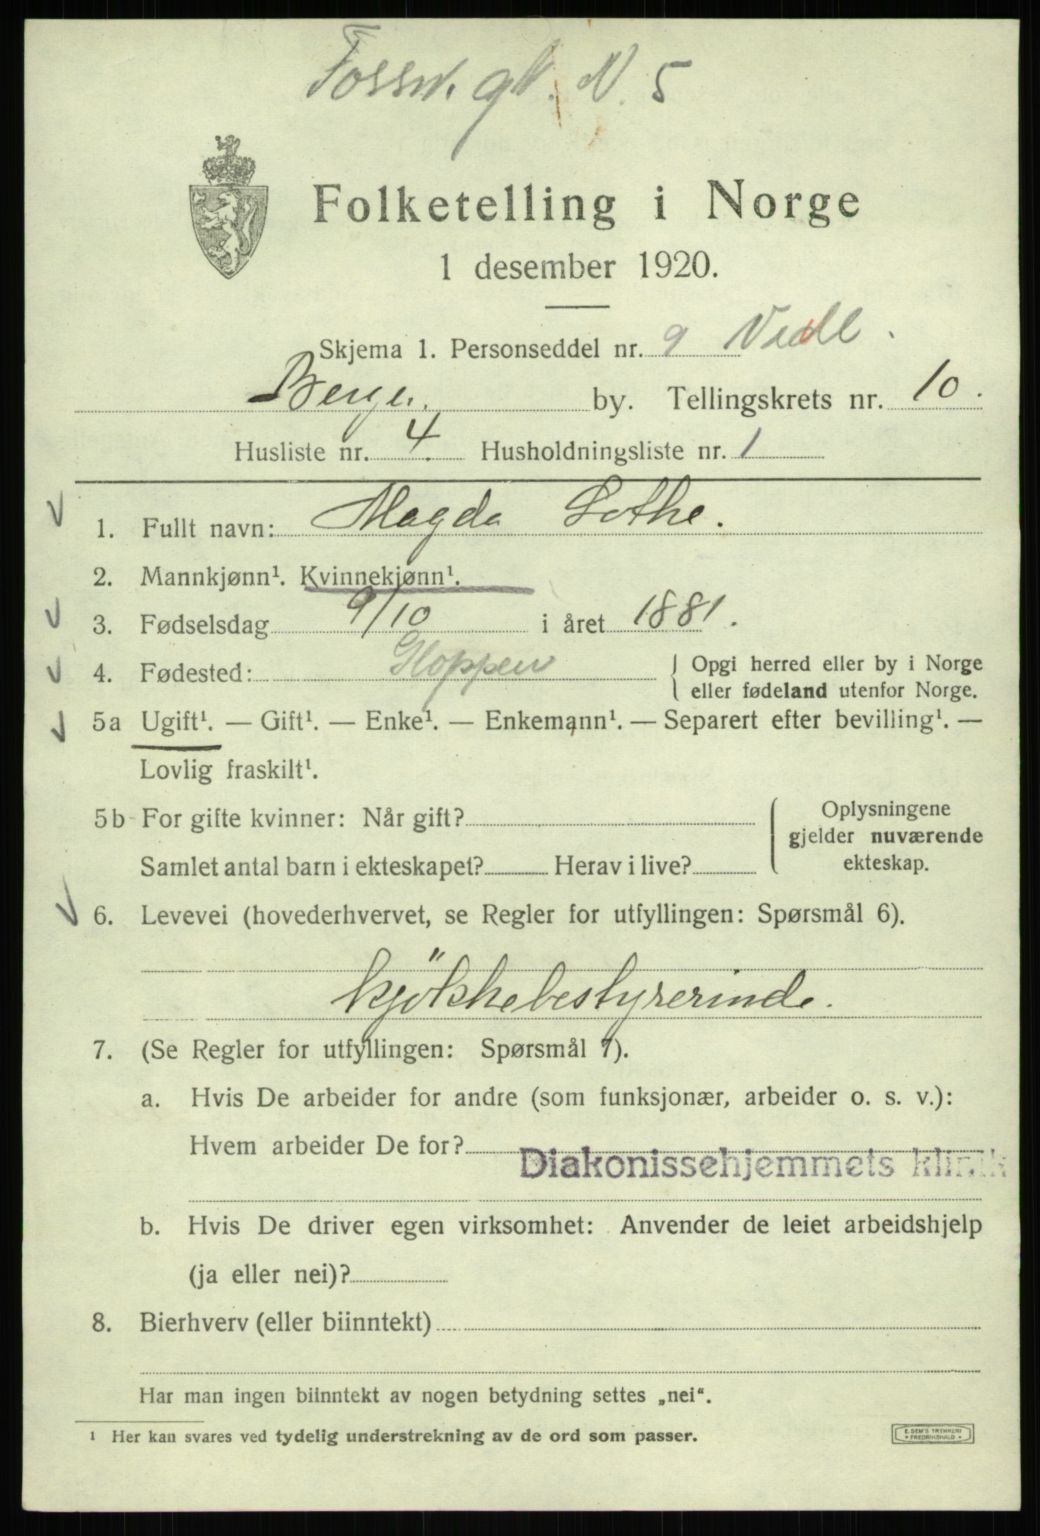 Fossw. gt. N. 5
Folketelling i Norge
1 desember 1920.
Skjema 1. Personseddel nr. 9 Vedl.
Bergen. by. Tellingskrets nr. 10.
Husliste nr. 4. Husholdningsliste nr. 1
1. Fullt navn: Magda Lothe.
2. Mannkjønn¹. Kvinnekjønn¹.
3. Fødselsdag 9/10 i året 1881.
4. Fødested: Gloppen
Opgi herred eller by i Norge
eller fødeland utenfor Norge.
5a Ugift¹. — Gift¹. — Enke¹. — Enkemann¹. — Separert efter bevilling¹. —
Lovlig fraskilt¹.
5b For gifte kvinner: Når gift?
Samlet antal barn i ekteskapet? Herav i live?
Oplysningene
gjelder nuværende
ekteskap.
6. Levevei (hovederhvervet, se Regler for utfyllingen: Spørsmål 6).
kjökkebestyrerinde.
7. (Se Regler for utfyllingen: Spørsmål 7).
a. Hvis De arbeider for andre (som funksjonær, arbeider o. s. v.):
Hvem arbeider De for?
Diakonissehjemmets klinik
b. Hvis De driver egen virksomhet: Anvender de leiet arbeidshjelp
(ja eller nei)?
8. Bierhverv (eller biinntekt)
Har man ingen biinntekt av nogen betydning settes „nei“.
¹ Her kan svares ved tydelig understrekning av de ord som passer.
E. SEM'S TRYKKERI
FREDRIKSHALD